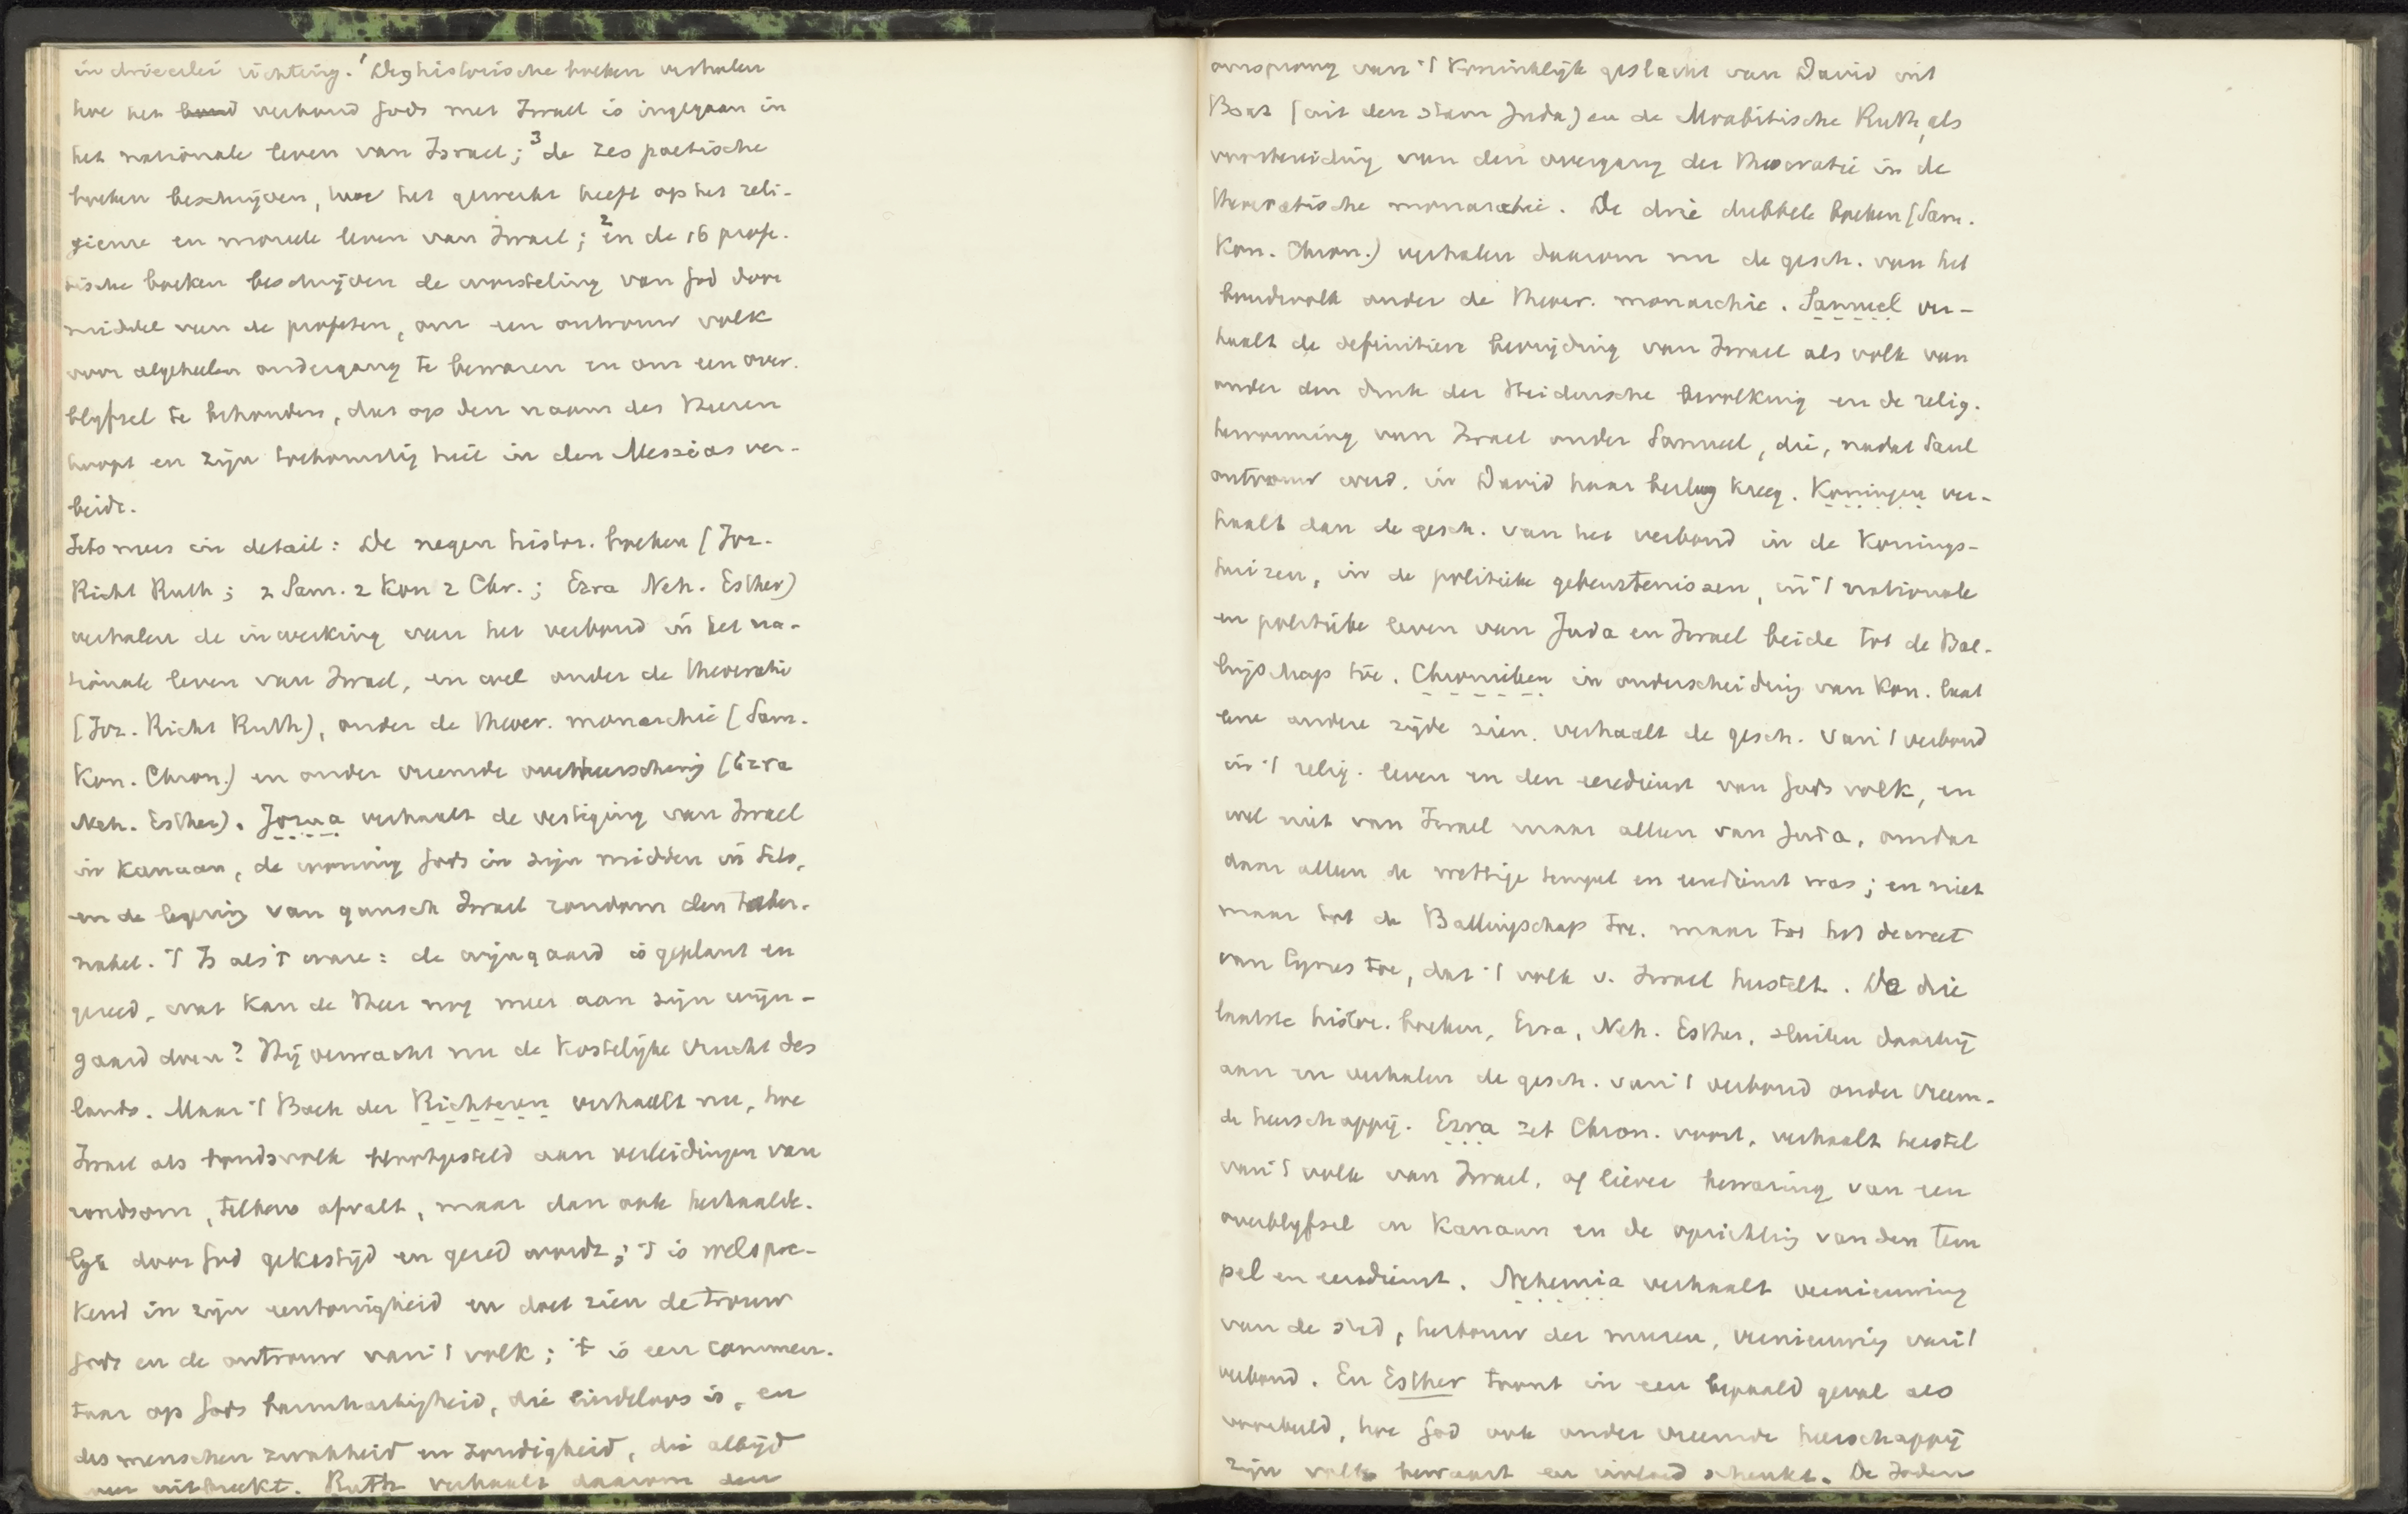 in drieerlei richting. 1 De 9 historische boeken verhalen
hoe het bond verbond Gods met Israel is ingegaan in
het nationale leven van Israel; 3 de zes poetische
boeken beschrijven, hoe het gewerkt heeft op het reli-
gieuse en moreele leven van Israel; 2 en de 16 profe-
tische boeken beschrijven de worsteling van God door
middel van de profeten, om een ontrouw volk
voor algeheelen ondergang te bewaren en om een over-
blyfsel te behouden, dat op den naam des Heeren
hoopt en zijn toekomstig heil in den Messias ver-
beidt.
Iets meer in detail: De negen histor. boeken (Joz.
Richt Ruth; 2 Sam. 2 Kon 2 Chr.; Ezra Neh. Esther)
verhalen de inwerking van het verbond in het na-
tionale leven van Israel, en wel onder de theocratie
(Joz. Richt Ruth), onder de theocr. monarchie (Sam.
Kon. Chron.) en onder vreemde overheersching (Ezra
Neh. Esther). Jozua verhaalt de vestiging van Israel
in Kanaan, de woning Gods in zijn midden in Silo,
en de legering van gansch Israel rondom den taber-
nakel. 't Is als 't ware: de wijngaard is geplant en
gereed, wat kan de Heer nog meer aan zijn wijn-
gaard doen? Hij verwacht nu de kostelijke vrucht des
lands. Maar 't Boek der Richteren verhaalt nu, hoe
Israel als bondsvolk blootgesteld aan verleidingen van
rondsom, telkens afvalt, maar dan ook herhaalde-
lyk door God gekastijd en gered wordt; 't is welspre-
kend in zijn eentonigheid en doet zien de trouw
Gods en de ontrouw van 't volk; 't is een commen-
taar op Gods barmhartigheid, die eindeloos is, en
des menschen zwakheid en zondigheid, die altijd
weer uitbreekt. Ruth verhaalt daarom den
oorsprong van 't Koninklijk geslacht van David uit
Boaz (uit den stam Juda) en de Moabitische Ruth, als
voorbereiding van den overgang der theocratie in de
theocratische monarchie. De drie dubbele boeken (Sam.
Kon. Chron.) verhalen daarom nu de gesch. van het
bondsvolk onder de theocr. monarchie. Samuel ver-
haalt de definitieve bevrijding van Israel als volk van
onder den druk der Heidensche bevolking en de relig.
hervorming van Israel onder Samuel, die, nadat Saul
ontrouw werd, in David haar beslag kreeg. Koningen ver-
haalt dan de gesch. van het verbond in de Konings-
huizen, in de politieke gebeurtenissen, in 't nationale
en politieke leven van Juda en Israel beide tot de Bal-
lingschap toe. Chronieken in onderscheiding van Kon. laat
eene andere zijde zien, verhaalt de gesch. van 't verbond
in 't relig. leven en den eeredienst van Gods volk, en
wel niet van Israel maar alleen van Juda, omdat
daar alleen de wettige tempel en eeredienst was; en niet
maar tot de Ballingschap toe, maar tot het decreet
van Cyrus toe, dat 't volk v. Israel herstelt. De drie
laatste histor. boeken, Ezra, Neh. Esther, sluiten daarbij
aan en verhalen de gesch. van 't verbond onder vreem-
de heerschappij. Ezra zet Chron. voort, verhaalt herstel
van 't volk van Israel, of liever bewaring van een
overblyfsel in Kanaan en de oprichting van den tem
pel en eeredienst. Nehemia verhaalt vernieuwing
van de stad, herbouw der muren, vernieuwing van 't
verbond. En Esther toont in een bepaald geval als
voorbeeld, hoe God ook onder vreemde heerschappij
zijn volk bewaart en invloed schenkt. De Joden